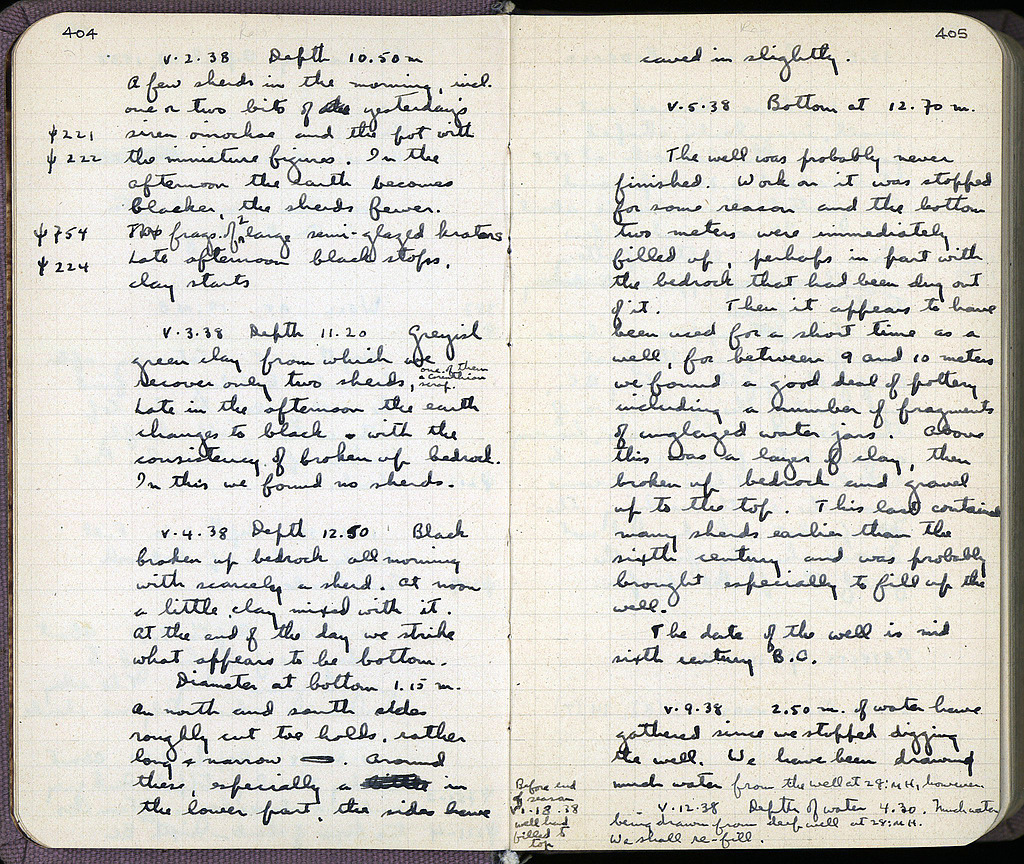 404
V.2.38 Depth 10.50 m
A few sherds in the morning, incl.
one or two bits of yesterday's
ψ221 siren oinochoe and the pot with
ψ222 the miniature figures. In the
afternoon the earth becomes
blacker, the sherds fewer.
ψ754 frags. of 2 large semi-glazed kraters
ψ224 Late afternoon black stops,
clay starts
V.3.38 Depth 11.20 Greyish
green clay from which we
recover only two sherds, one of them
a Corinthian
scrap.
Late in the afternoon the earth
changes to black with the
consistency of broken up bedrock.
In this we found no sherds.
V.4.38 Depth 12.50 Black
broken up bedrock all morning
with scarcely a sherd. At noon
a little clay mixed with it.
At the end of the day we strike
what appears to be bottom.
Diameter at bottom 1.15 m.
On north and south sides
roughly cut toe holds, rather
long & narrow. Around
these, especially in
the lower part, the sides have
405
caved in slightly.
V.5.38 Bottom at 12.70 m.
The well was probably never
finished. Work on it was stopped
for some reason and the bottom
two meters were immediately
filled up, perhaps in part with
the bedrock that had been dug out
of it. Then it appears to have
been used for a short time as a
well, for between 9 and 10 meters
we found a good deal of pottery
including a number of fragments
of unglazed water jars. Above
this was a layer of clay, then
broken up bedrock and gravel
up to the top. This last contained
many sherds earlier than the
sixth century and was probably
brought especially to fill up the
well.
The date of the well is mid
sixth century B.C.
V.9.38 2.50 m. of water have
gathered since we stopped digging
the well. We have been drawing
much water from the well at 28:ΜΗ, however
V.12.38 Depth of water 4.30. Much water
being drawn from deep well at 28:ΜΗ.
We shall re-fill.
Before end
of season
V.18.38
well had
filled to
top